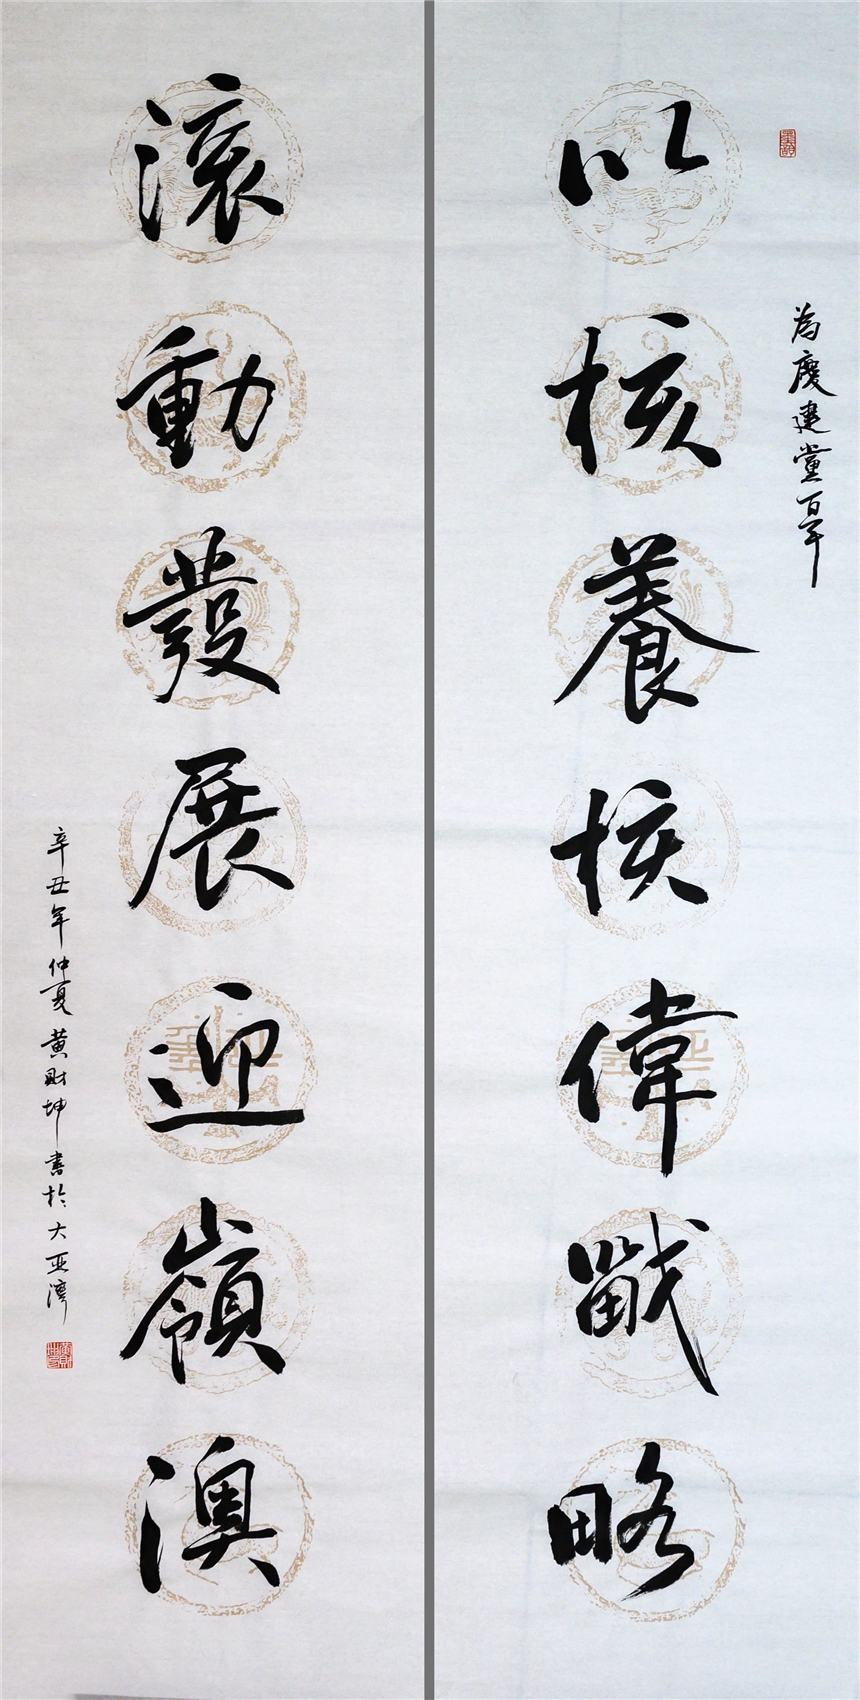 為慶建黨百年
以核養核偉戰略
滾動發展迎嶺澳
辛丑年仲夏黄財坤書於大亚灣